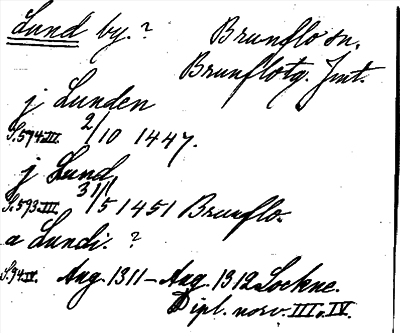 Lund by.? Brunflo sn.
Brunflotg. Jmt.
j Lunden
S.594.III. 2/10 1447.
j Lund,
S.593.III. 31/5 1451 Brunflo.
a Lundi. ?
S.94.IV. Aug. 1311 – Aug. 1312 Lockne.
Dipl. norv. III o. IV.